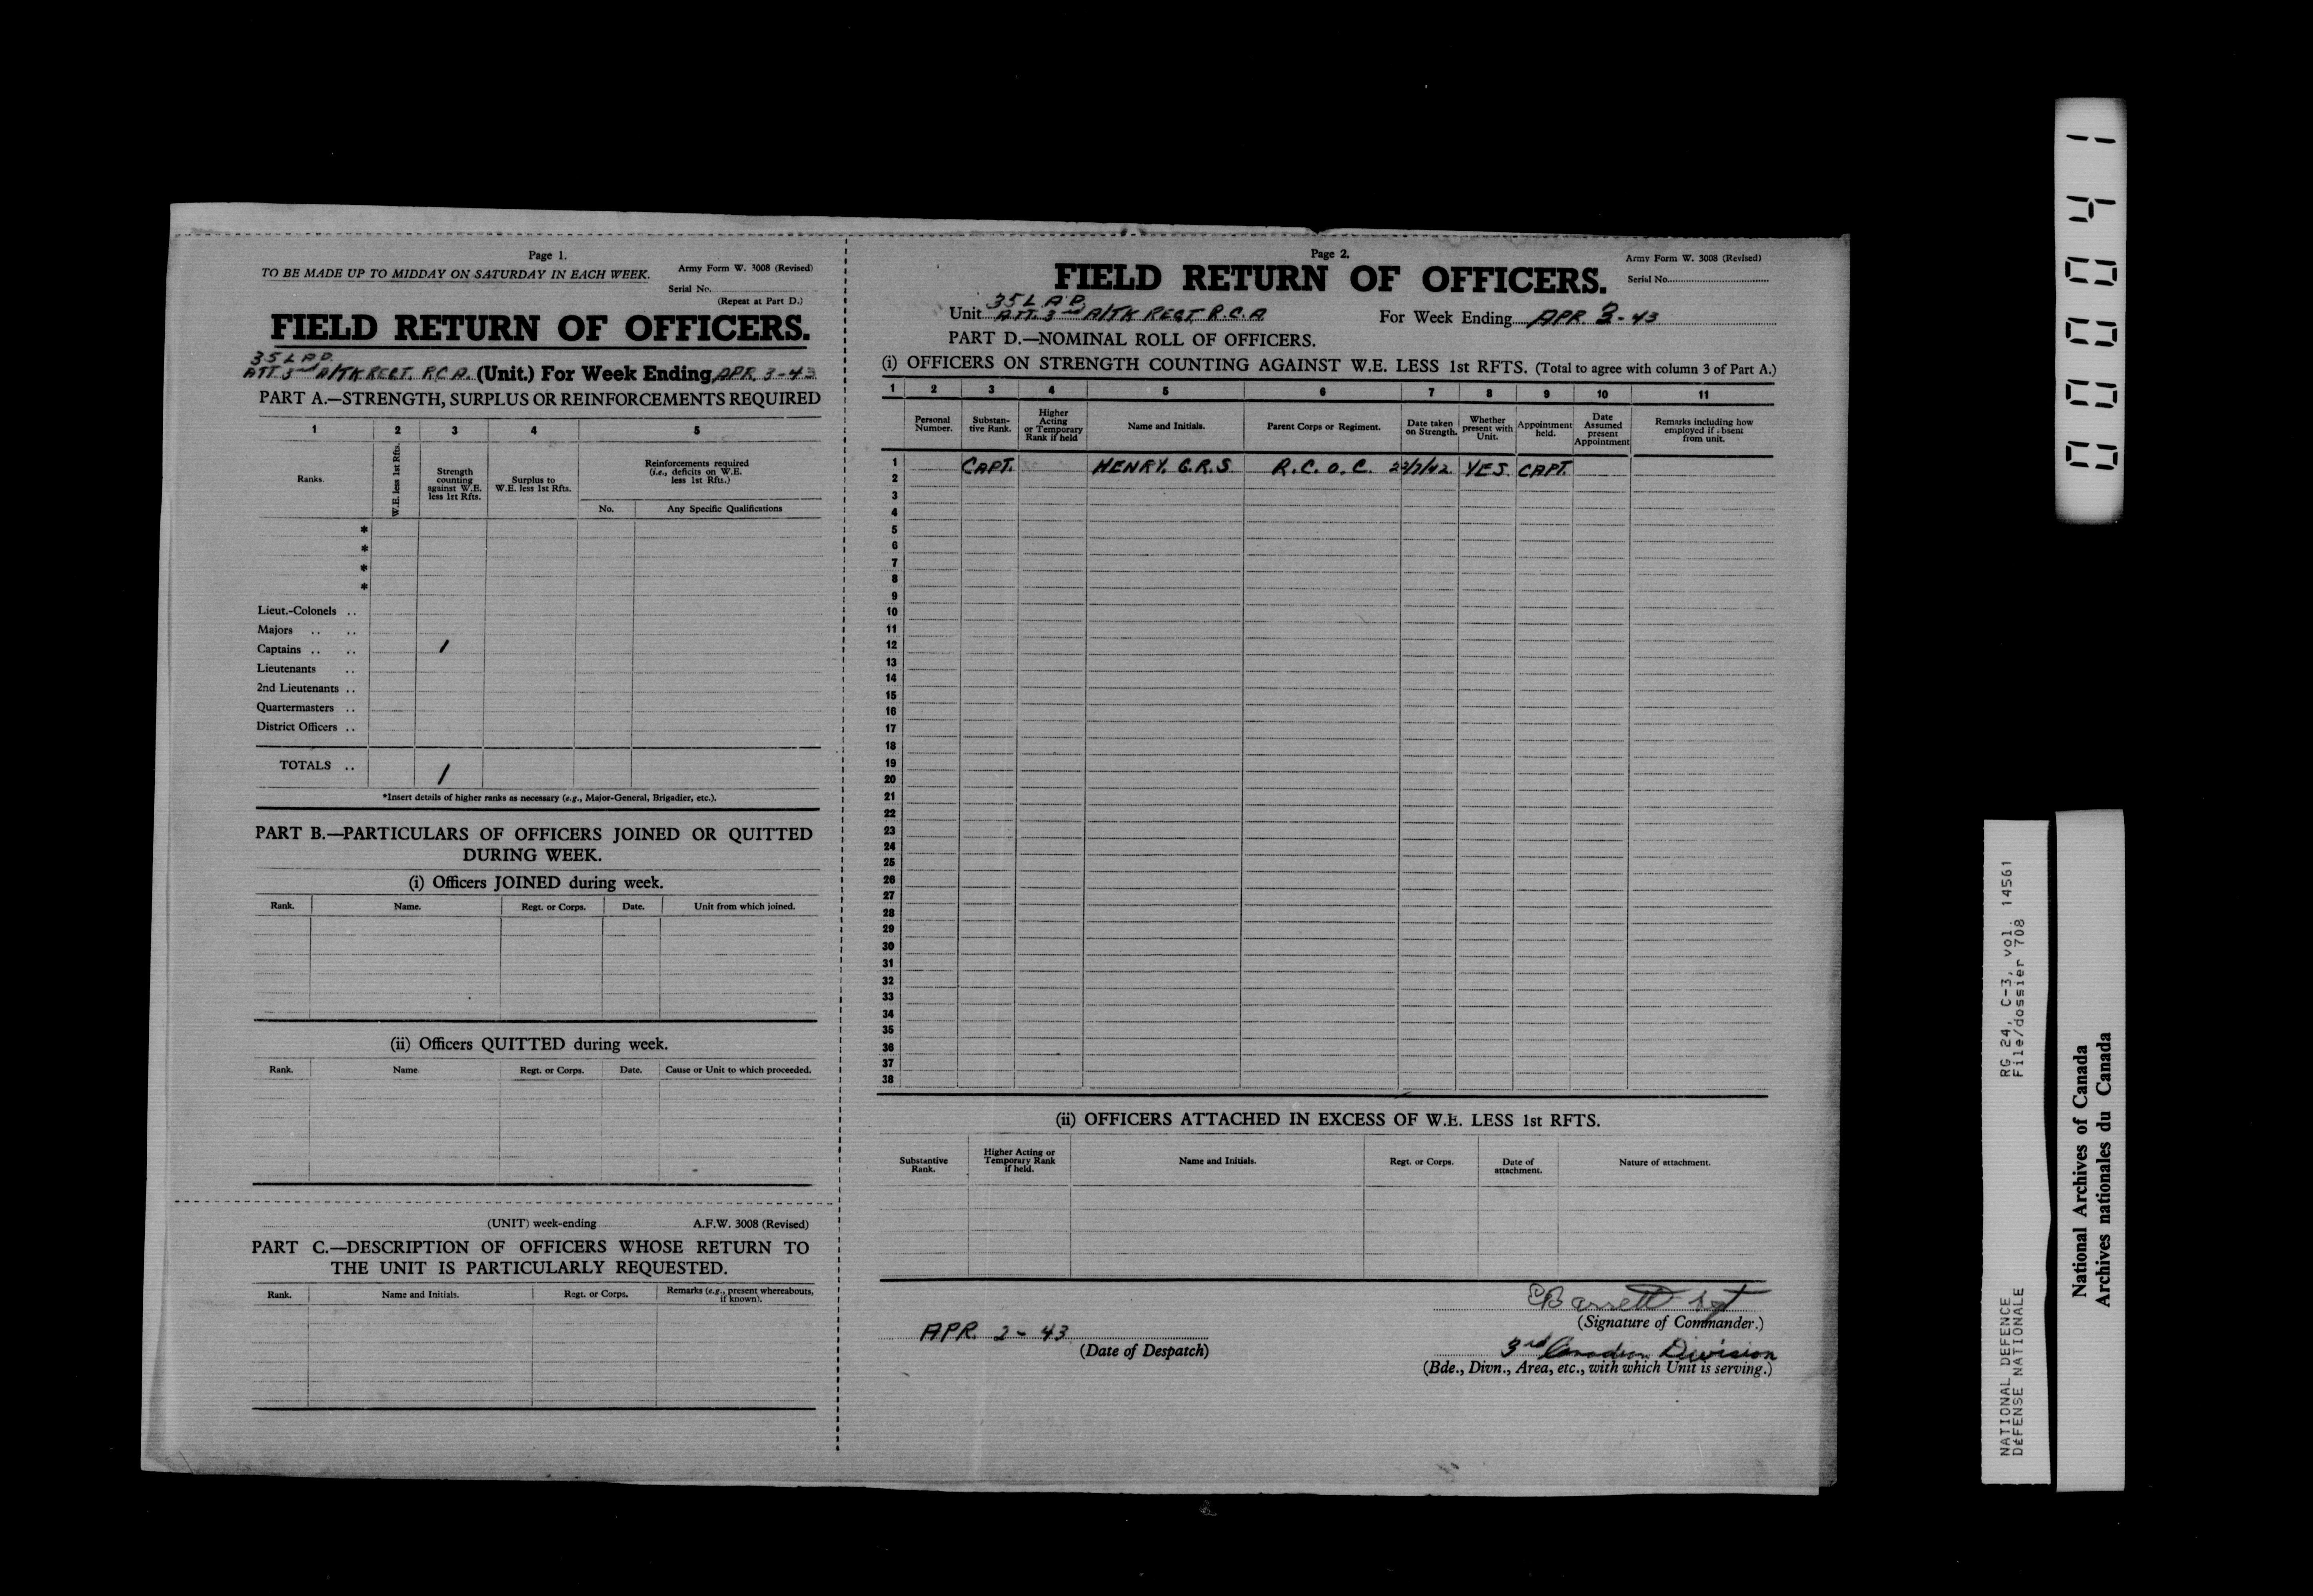 Page 1.
TO BE MADE UP TO MIDDAY ON SATURDAY IN EACH WEEK.
Army Form W. 3008 (Revised)
Serial No.
(Repeat at Part D.)
FIELD RETURN OF OFFICERS.
35 L A D.
ATT. 3rd A/TK REGT. R C A. (Unit.) For Week Ending APR. 3-43
PART A.—STRENGTH, SURPLUS OR REINFORCEMENTS REQUIRED
1 2 3 4 5
Ranks.
W.E. less 1st Rfts.
Strength counting against W.E. less 1st Rfts.
Surplus to W.E. less 1st Rfts.
Reinforcements required (i.e., deficits on W.E. less 1st Rfts.)
No. Any Specific Qualifications
*
*
*
*
Lieut.-Colonels ..
Majors .. ..
Captains .. .. 1
Lieutenants ..
2nd Lieutenants ..
Quartermasters ..
District Officers ..
TOTALS .. 1
*Insert details of higher ranks as necessary (e.g., Major-General, Brigadier, etc.).
PART B.—PARTICULARS OF OFFICERS JOINED OR QUITTED
DURING WEEK.
(i) Officers JOINED during week.
Rank. Name. Regt. or Corps. Date. Unit from which joined.
(ii) Officers QUITTED during week.
Rank. Name Regt. or Corps. Date. Cause or Unit to which proceeded.
(UNIT) week-ending A.F.W. 3008 (Revised)
PART C.—DESCRIPTION OF OFFICERS WHOSE RETURN TO
THE UNIT IS PARTICULARLY REQUESTED.
Rank. Name and Initials. Regt. or Corps. Remarks (e.g., present whereabouts, if known).
Page 2.
Army Form W. 3008 (Revised)
FIELD RETURN OF OFFICERS.
Serial No.
35 L A D.
Unit ATT. 3rd A/TK REGT. R.C.A. For Week Ending APR. 3-43
PART D.—NOMINAL ROLL OF OFFICERS.
(i) OFFICERS ON STRENGTH COUNTING AGAINST W.E. LESS 1st RFTS. (Total to agree with column 3 of Part A.)
1 2 3 4 5 6 7 8 9 10 11
Personal Number.
Substantive Rank.
Higher Acting or Temporary Rank if held
Name and Initials.
Parent Corps or Regiment.
Date taken on Strength.
Whether present with Unit.
Appointment held.
Date Assumed present Appointment
Remarks including how employed if absent from unit.
1 CAPT. HENRY. G.R.S. R.C.O.C. YES. CAPT.
2
3
4
5
6
7
8
9
10
11
12
13
14
15
16
17
18
19
20
21
22
23
24
25
26
27
28
29
30
31
32
33
34
35
36
37
38
(ii) OFFICERS ATTACHED IN EXCESS OF W.E. LESS 1st RFTS.
Substantive Rank.
Higher Acting or Temporary Rank if held.
Name and Initials.
Regt. or Corps.
Date of attachment.
Nature of attachment.
Barrett Sgt
(Signature of Commander.)
APR. 2-43
(Date of Despatch)
3rd Canadian Division
(Bde., Divn., Area, etc., with which Unit is serving.)
00041
RG 24, C-3, vol. 14561
File/dossier 708
NATIONAL DEFENCE
DÉFENSE NATIONALE
National Archives of Canada
Archives nationales du Canada